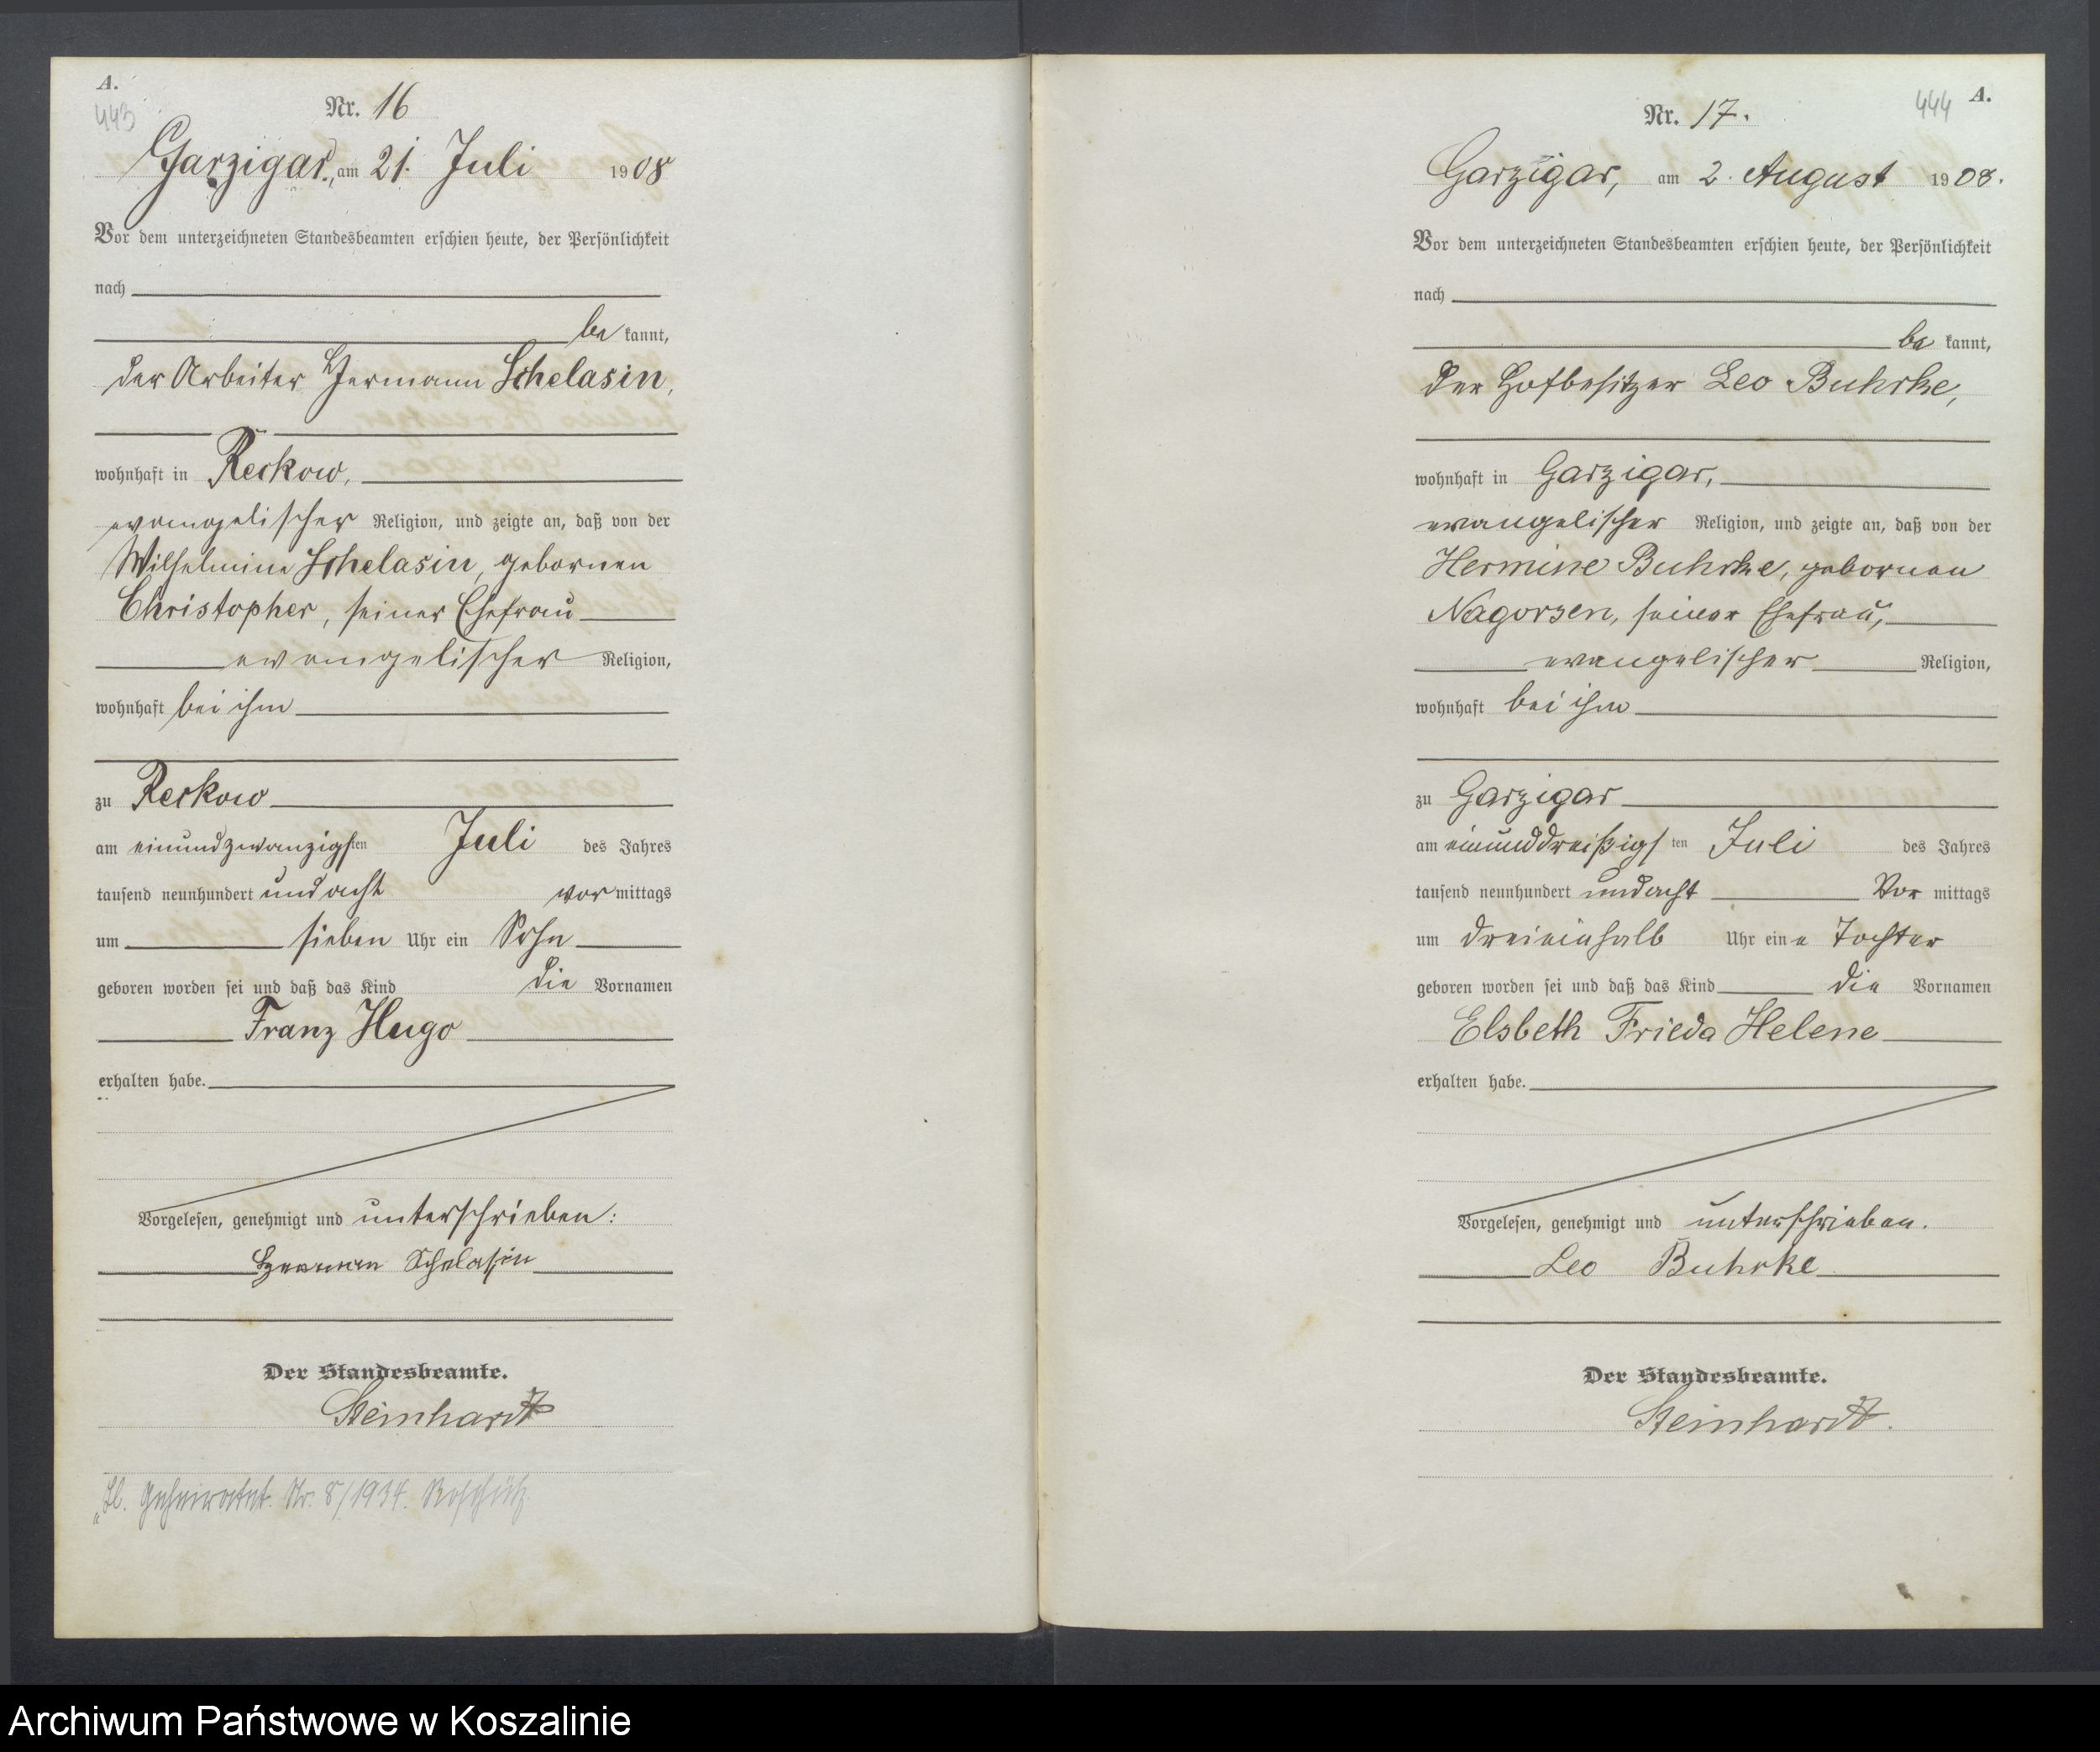 A.
443
Nr. 16
Garzigar, am 21. Juli 1908
Vor dem unterzeichneten Standesbeamten erschien heute, der Persönlichkeit
nach
be kannt,
der Arbeiter Hermann Schelasin,
wohnhaft in Reckow,
evangelischer Religion, und zeigte an, daß von der
Wilhelmine Schelasin, gebornen
Christopher, seiner Ehefrau
evangelischer Religion,
wohnhaft bei ihm
zu Reckow
am einundzwanzigsten Juli des Jahres
tausend neunhundert und acht vor mittags
um sieben Uhr ein Sohn
geboren worden sei und daß das Kind die Vornamen
Franz Hugo
erhalten habe.
Vorgelesen, genehmigt und unterschrieben:
Herman Schelasin
Der Standesbeamte.
Steinhardt
geheiratet. Nr. 8/1934.
444 A.
Nr. 17.
Garzigar, am 2. August 1908.
Vor dem unterzeichneten Standesbeamten erschien heute, der Persönlichkeit
nach
be kannt,
der Hofbesitzer Leo Buhrke,
wohnhaft in Garzigar,
evangelischer Religion, und zeigte an, daß von der
Hermine Buhrke, gebornen
Nagorsen, seiner Ehefrau,
evangelischer Religion,
wohnhaft bei ihm
zu Garzigar
am einunddreißigsten Juli des Jahres
tausend neunhundert und acht Vor mittags
um dreieinhalb Uhr eine Tochter
geboren worden sei und daß das Kind die Vornamen
Elsbeth Frieda Helene
erhalten habe.
Vorgelesen, genehmigt und unterschrieben.
Leo Buhrke
Der Standesbeamte.
Steinhardt.
Archiwum Państwowe w Koszalinie